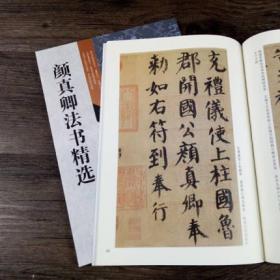 颜真卿法书精选
充禮儀使上柱國魯
郡開國公顔真卿奉
勅如右符到奉行